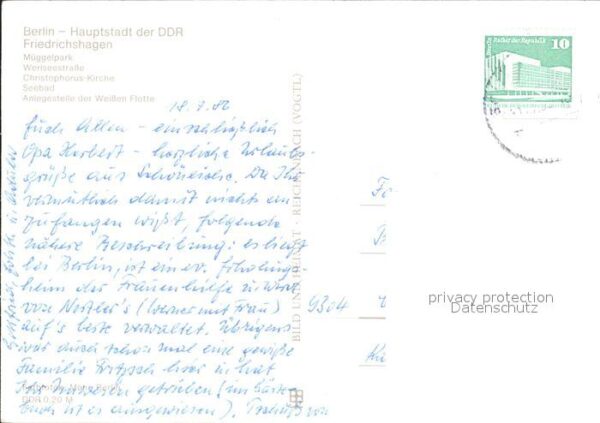 Berlin – Hauptstadt der DDR
Friedrichshagen
Müggelpark
Werlseestraße
Christophorus-Kirche
Seebad
Anlegestelle der Weißen Flotte
18.7.86
Euch Allen - einschließlich
Opa Herbert - herzliche Urlaubs-
grüße aus Schöneiche. Da Ihr
vermutlich damit nichts an-
zufangen wißt, folgende
nähere Beschreibung: es liegt
bei Berlin, ist ein ev. Erholungs
heim der Frauenhilfe u. wird
von Nestler's (Werner mit Frau)
auf's beste verwaltet. Übrigens
war auch schon mal eine gewisse
Familie Fritzsch hier u. hat
ihr Unwesen getrieben (im Gäste-
buch ist es ausgewiesen). Tschüß von
DDR 0,20 M
BILD UND HEIMAT REICHENBACH (VOGTL)
Palast der Republik
10
9304
privacy protection
Datenschutz